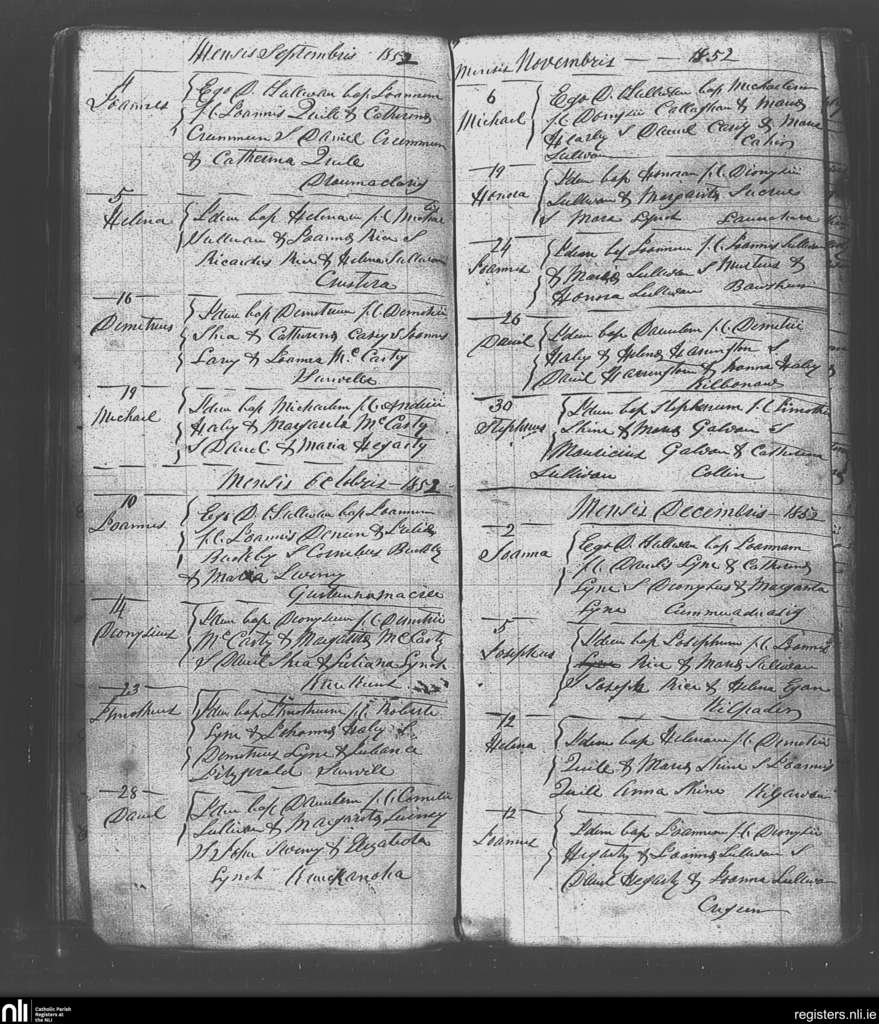 Mensis Septembris 1852
4
Joannes
Ego D. Sulliwan bap Joannem
f.l. Joannis Quile & Catherina
Crimmun S Daniel Crummun
& Catherina Quile
5
Helena
Idem bap Helenam f.l. Michae
Sulliwan & Joanna Rice S
Ricardus Rice & Helena Sulliwan
16
Demetrius
Idem bap Demetrium f.l. Demetrii
Shea & Catherina Casey S Joannes
& Joanna McCarty
19
Michael
Idem bap Michaelem f.l. Andrii
Haly & Margarita McCarty
S Daniel & Maria Hegarty
Mensis Octobris 1852
10
Joannes
Ego D. Sulliwan bap Joannem
f.l. Joannis & Julia
Buckley S Cornelius Buckley
& Maria Sweeny
14
Dionysius
Idem bap Dionysium f.l. Demetrii
McCarty & Margarita McCarty
S Daniel Shea & Juliana Lynch
23
Timotheus
Idem bap Timotheum f.l. Roberti
Lyne & Johanna Haly S
Demetrius Lyne & Juliana
Fitzgerald
28
Daniel
Idem bap Danielem f.l. Cornelii
Sullivan & Margarita Sweney
S John Sweny & Elizabeta
Lynch
Mensis Novembris 1852
6
Michael
Ego D. Sulliwan bap Michaelem
f.l. Dionysii Callaghan & Maria
S Daniel Casey & Maria
Sulliwan Cahir
19
Honora
Idem bap Honoram f.l. Dionysii
Sulliwan & Margarita
S Mora Lynch
24
Joannes
Idem bap Joannem f.l. Joannis Sulliwan
& Maria Sulliwan S &
Honora Sulliwan
26
Daniel
Idem bap Danielem f.l. Demetrii
Haly & Helena Harrington S
Daniel Harrington & Joanna Haly
Kilbonane
30
Stephenus
Idem bap Stephenum f.l. Timothei
Shine & Maria Galwan S
Mauricius Galwan & Catherina
Sulliwan
Mensis Decembris 1852
2
Joanna
Ego D. Sulliwan bap Joannam
f.l. Daniel Lyne & Catherina
Lyne S Dionysius & Margarita
Lyne
5
Josephus
Idem bap Josephum f.l. Joannis
Rice & Maria Sulliwan
S Joseph Rice & Helena Egan
12
Helena
Idem bap Helenam f.l. Demetrii
Quile & Maria Shine S Joannis
Quill Anna Shine
12
Joannes
Idem bap Joannem f.l. Dionysii
Hegarty & Joanna Sulliwan S
Daniel Hegarty & Joanna Sulliwan
nli
Catholic Parish
Registers at
the NLI
registers.nli.ie